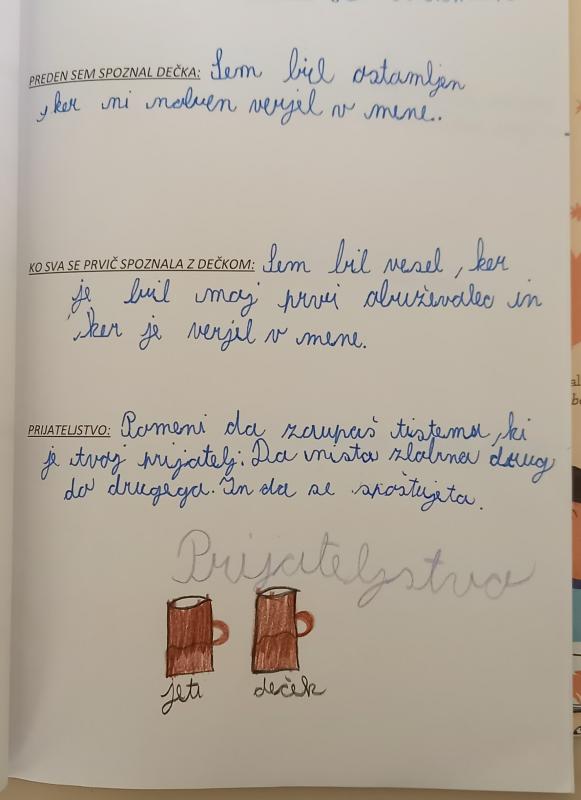 PREDEN SEM SPOZNAL DEČKA: Sem bil ostamljen
, ker ni noben verjel v mene..
KO SVA SE PRVIČ SPOZNALA Z DEČKOM: Sem bil vesel, ker
je bil moj prvi obuževalec in
, ker je verjel v mene.
PRIJATELJSTVO: Pomeni da zaupaš tistemu, ki
je tvoj prijatelj. Da nista zlobna drug
do drugega. In da se spoštujeta.
Prijateljstvo
jeti deček